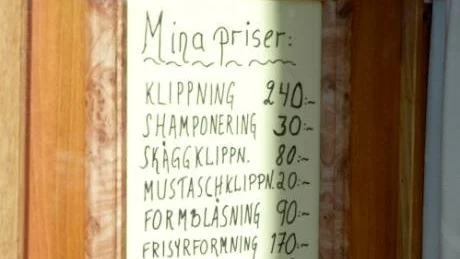 Mina priser:
KLIPPNING 240:~
SHAMPONERING 30:~
SKÄGGKLIPPN. 80:~
MUSTASCHKLIPPN. 20:~
FORMBLÅSNING 90:~
FRISYRFORMNING 170:~